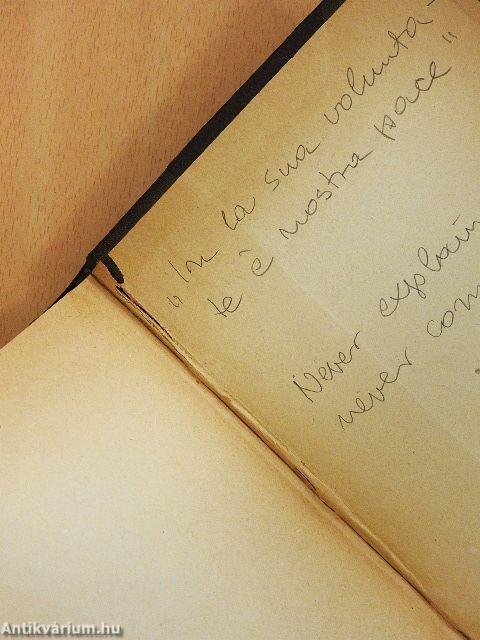 „In la sua volunta-
te è nostra pace"
Never explain
never com
Antikvárium.hu